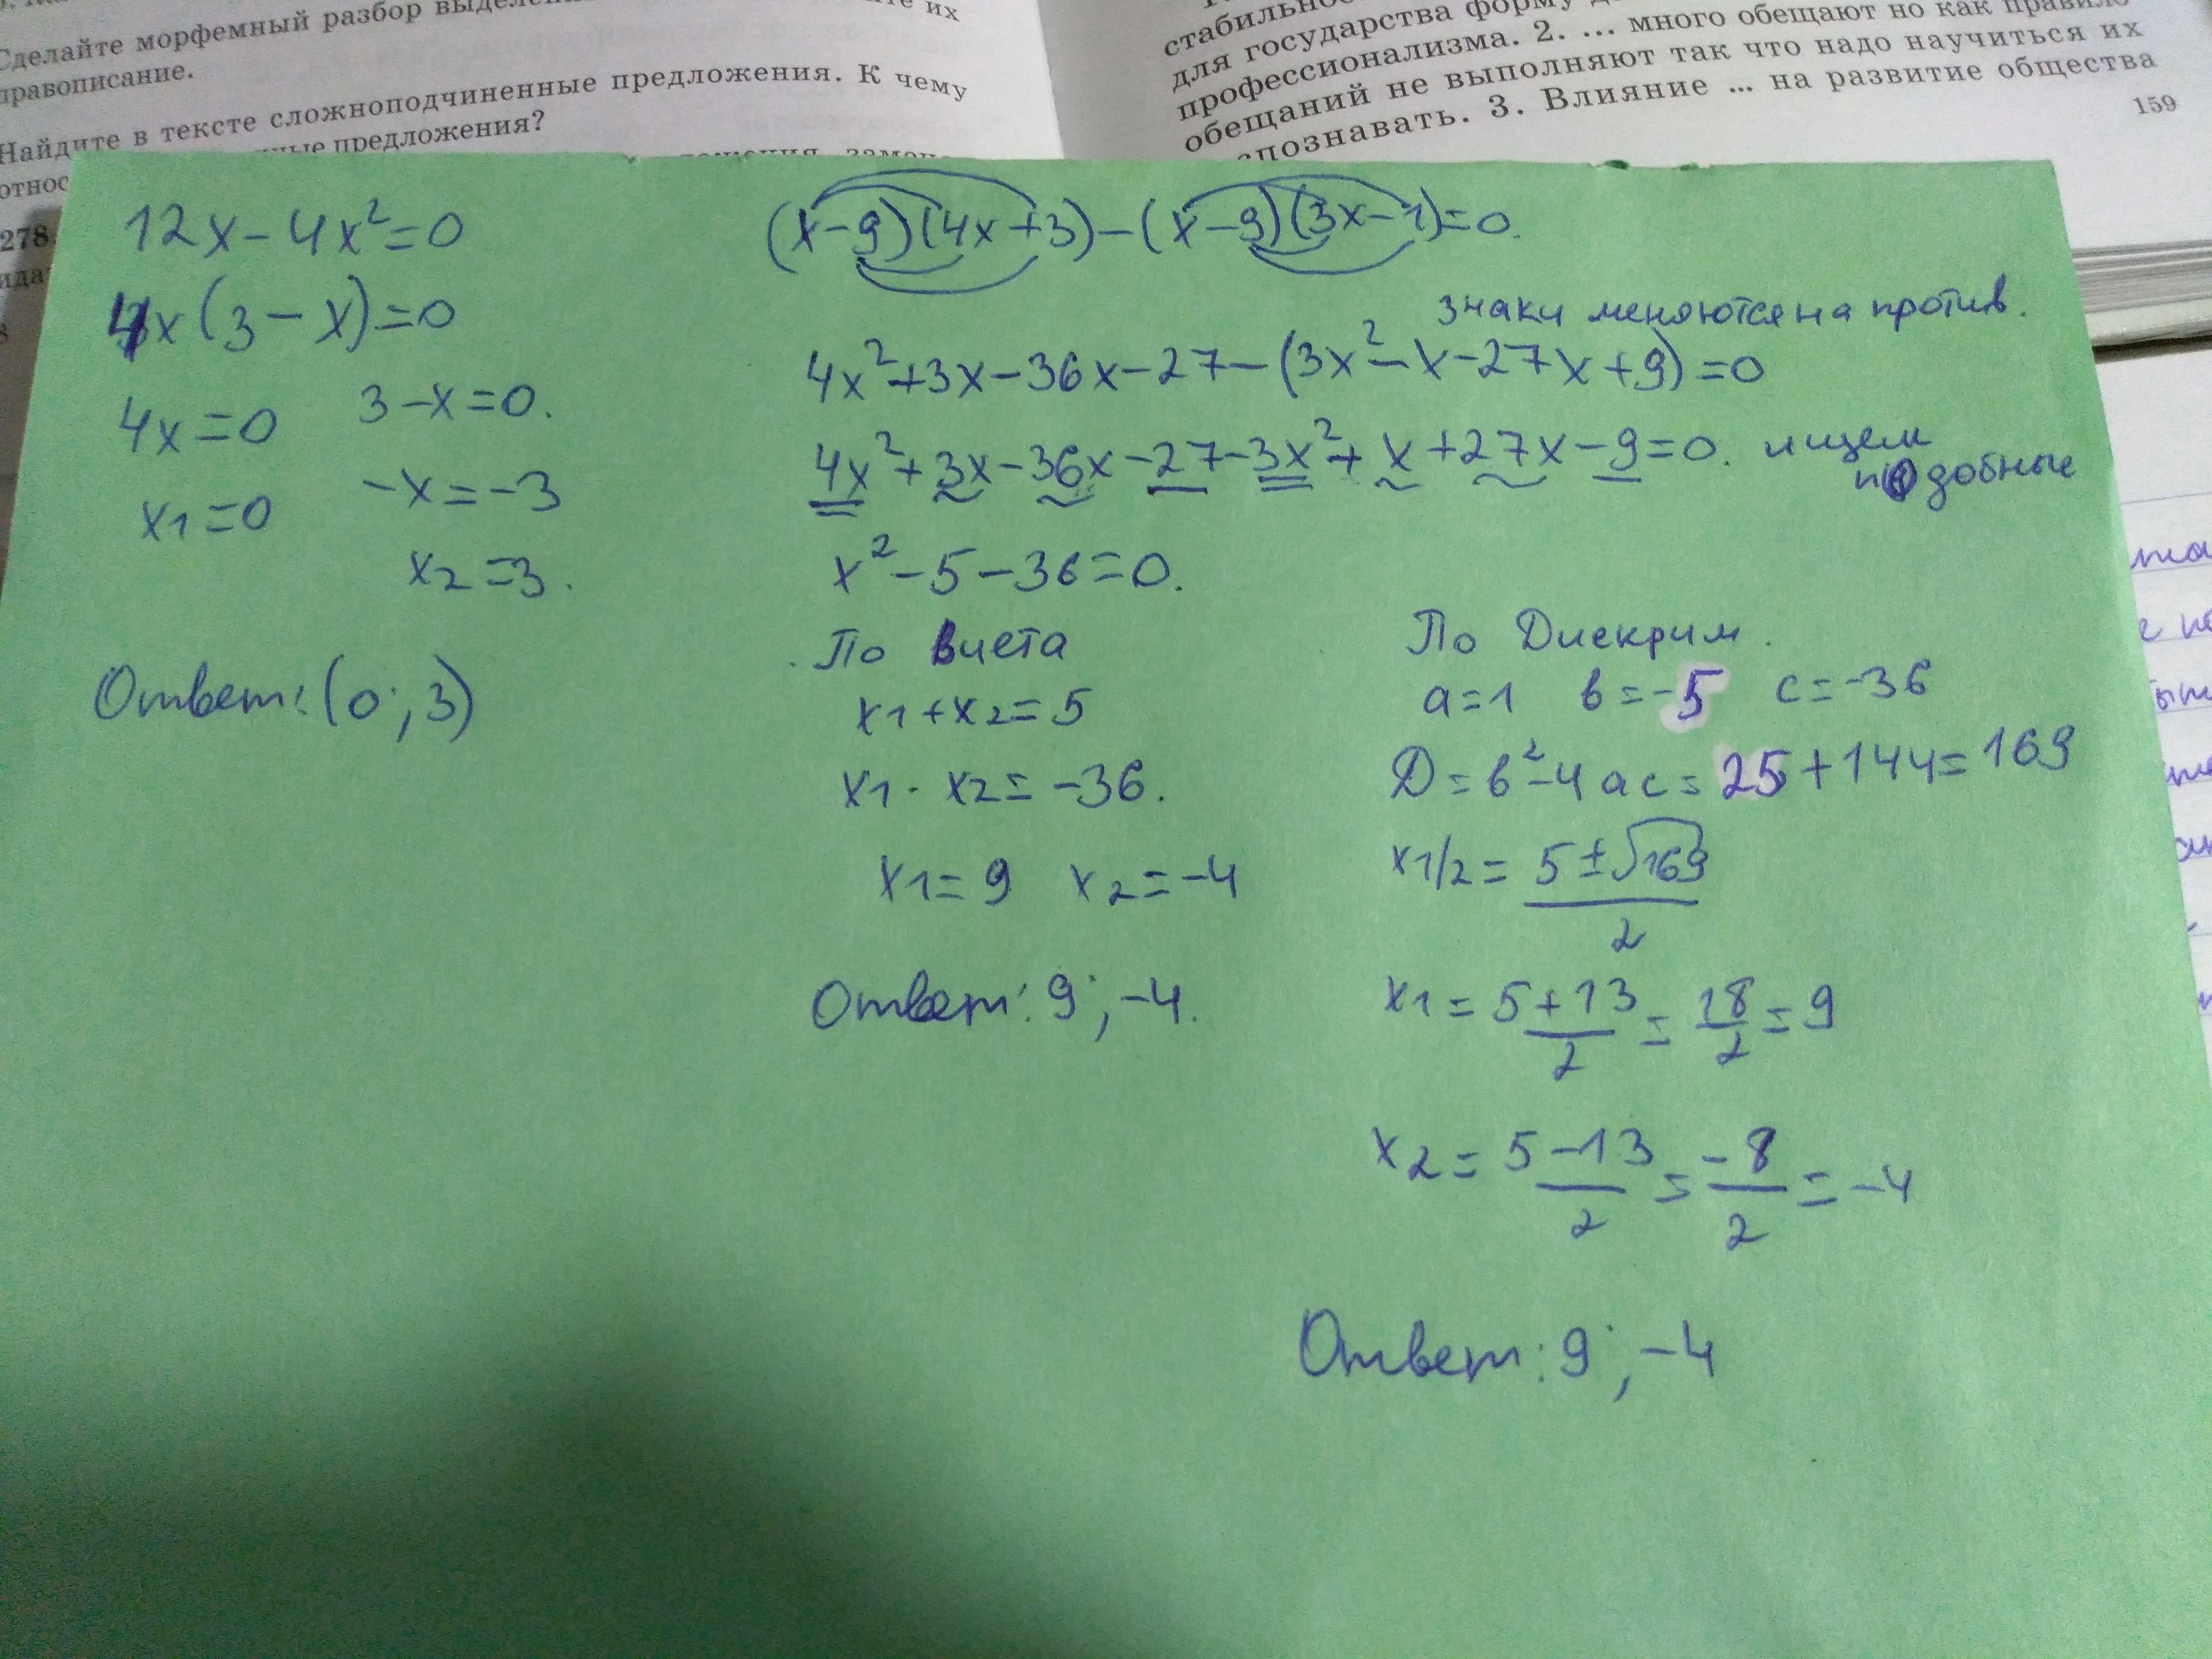 Сделайте морфемный разбор
их
правописание.
Найдите в тексте сложноподчиненные предложения. К чему
предложения?
278.
для государства форму
профессионализма. 2. ... много обещают но как правило
обещаний не выполняют так что надо научиться их
3. Влияние ... на развитие общества
159
12x - 4x² = 0
4x (3 - x) = 0
4x = 0 3 - x = 0.
x1 = 0 -x = -3
x2 = 3.
Ответ: (0; 3)
(x-9)(4x+3)-(x-9)(3x-1)=0.
знаки меняются на против.
4x²+3x-36x-27-(3x²-x-27x+9)=0
4x²+3x-36x-27-3x²+x+27x-9=0. ищем
подобные
x²-5-36=0.
По Виета
x1+x2=5
x1·x2=-36.
x1=9 x2=-4
Ответ: 9; -4.
По Дискрим.
a=1 в=-5 c=-36
Д=в²-4ac=25+144=169
x1/2=5±√169/2
x1=5+13/2=18/2=9
x2=5-13/2=-8/2=-4
Ответ: 9; -4